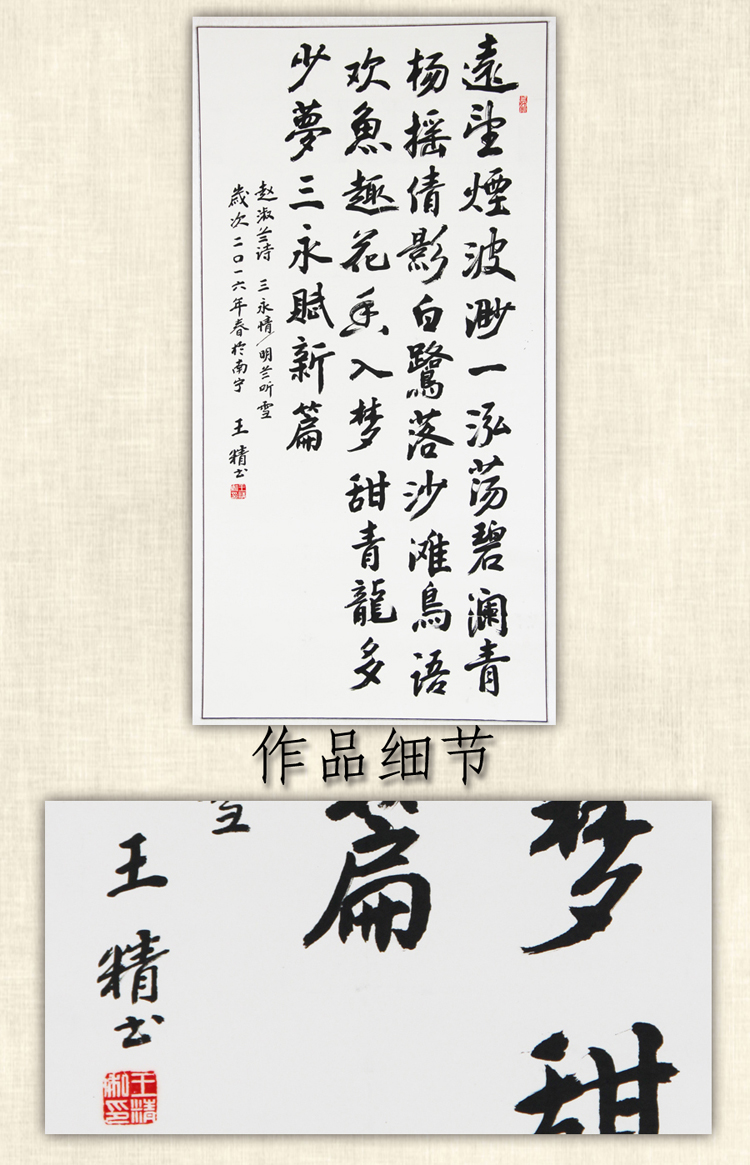 遠望煙波渺一泓荡碧澜青
杨摇倩影白鷺落沙滩鳥语
欢魚趣花香入梦甜青龍多
少夢三永赋新篇
赵淑兰诗 三永情/明兰听雪
歲次二〇一六年春於南宁 王精书
作品细节
梦甜
篇
雪
王精书
王精私印